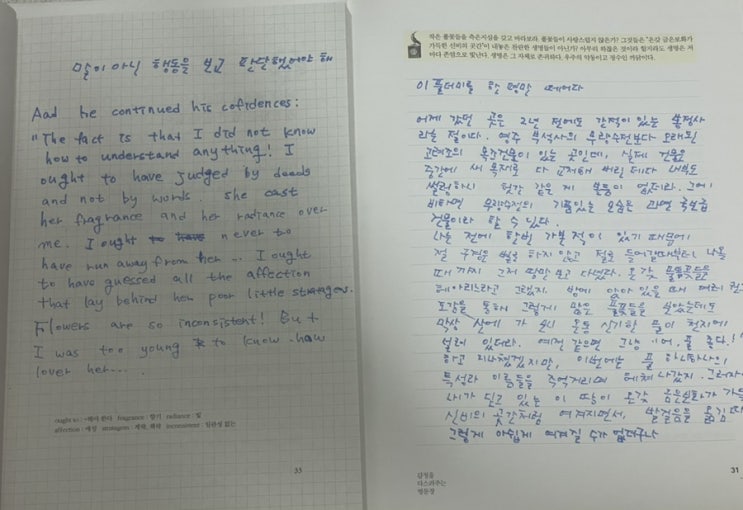 말이 아닌 행동을 보고 판단했어야 해
And he continued his cofidences:
"The fact is that I did not know
how to understand anything! I
ought to have judged by deeds
and not by words. She cast
her fragrance and her radiance over
me. I ought to have never to
have run away from her... I ought
to have guessed all the affection
that lay behind her poor little stratagems.
Flowers are so inconsistent! But
I was too young to know how
lover her....
ought to : ~해야 한다 fragrance : 향기 radiance : 빛
affection : 애정 stratagem : 계략, 책략 inconsistent : 일관성 없는
33
작은 풀꽃들을 측은지심을 갖고 바라보라. 풀꽃들이 사랑스럽지 않은가? 그것들은 "온갖 금은보화가
가득한 신비의 곳간"이 내놓은 찬란한 생명들이 아닌가? 아무리 하찮은 것이라 할지라도 생명은 저
마다 존엄으로 빛난다. 생명은 그 자체로 존귀하다. 우주의 약동이고 정수인 까닭이다.
이 풀더미를 한 평만 떼어다
어제 갔던 곳은 2년 전에도 간적이 있는 봉정사
라는 절이다. 영주 부석사의 무량수전보다 오래된
고려조의 목조건물이 있는 곳인데, 실제 건물은
중간에 새 목재로 다 교체해 버린 데다 내부도
썰렁하니 헛간 같은 게 볼품이 없더라. 그에
비하면 무량수전의 기품있는 모습은 과연 국보급
건물이라 할 수 있다.
나는 전에 한번 가본 적이 있기 때문에
절 구경은 별로 하지 않고 절로 들어갈때부터 나올
때까지 그저 땅만 보고 다녔다. 온갖 풀꽃들을
헤아리느라고 그랬지. 방에 앉아 있을 때 여러 권
도감을 통해 그렇게 많은 풀꽃들을 보았는데도
막상 산에 가 보니 온통 신기한 풀이 천지에
널려 있더라. 예전 같으면 그냥 "어, 풀 좋다!"
하고 지나쳤겠지만, 이번에는 풀 하나하나의
특성과 이름들을 주억거리며 헤쳐 나갔지. 그러자
내가 딛고 있는 이 땅이 온갖 금은보화가 가득
신비의 곳간처럼 여겨지면서, 발걸음을 옮김
그렇게 아쉽게 여겨질 수가 없더구나
감정을
다스려주는
명문장
31